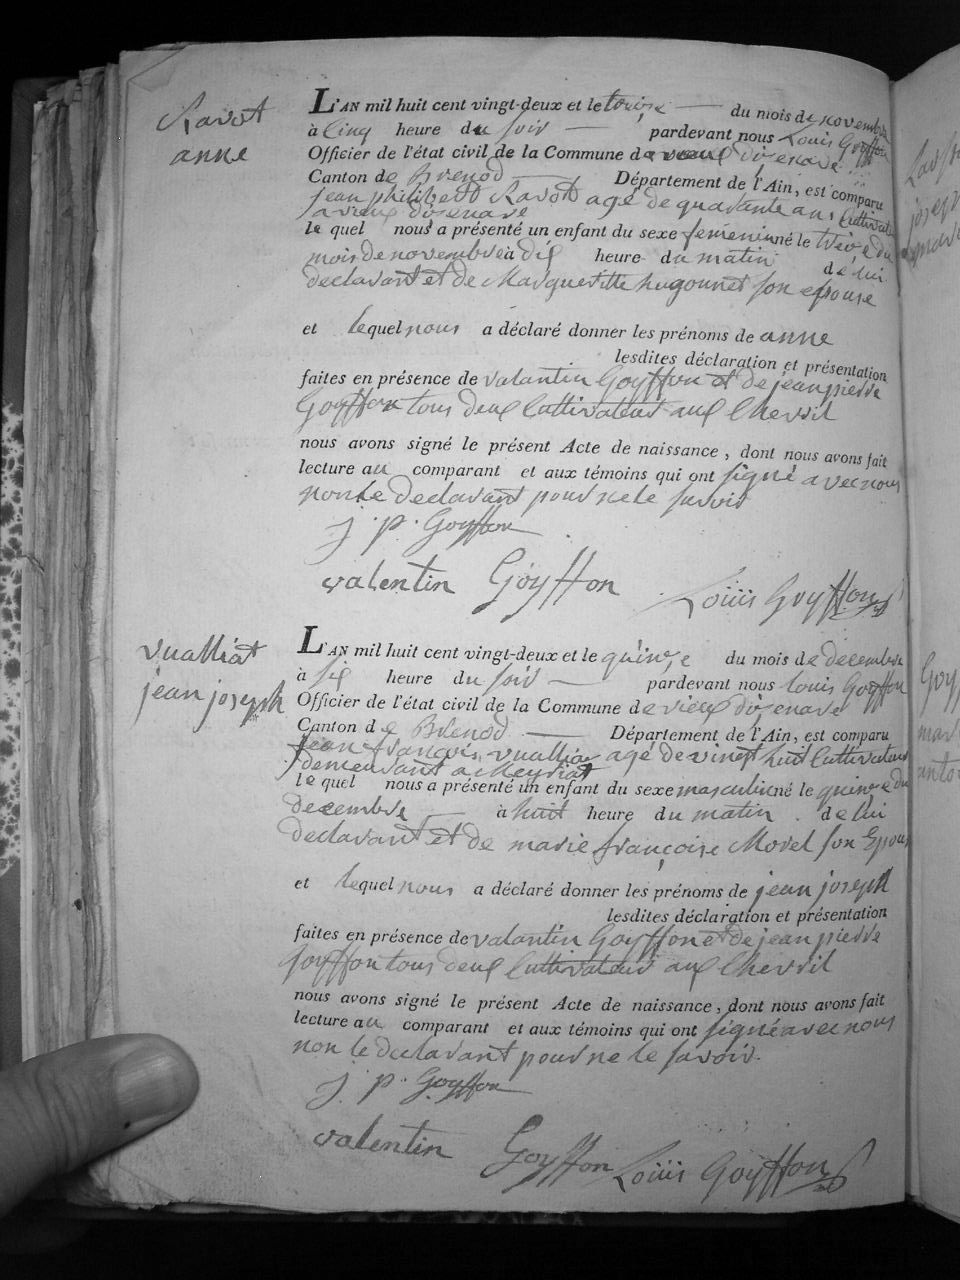 Ravot
anne
L'AN mil huit cent vingt-deux et le treize du mois de novembre
à Cinq heure du soir pardevant nous Louis Goyffon
Officier de l'état civil de la Commune de vieux disenave
Canton de Brenod Département de l'Ain, est comparu
jean philibert Ravot agé de quarante ans Cultivateur
a vieux disenave
le quel nous a présenté un enfant du sexe femenin né le treize du
mois de novembre à dix heure du matin de lui
declarant et de Margueritte hugonnet son epouse
et lequel nous a déclaré donner les prénoms de anne
lesdites déclaration et présentation
faites en présence de valantin Goyffon et de jean pierre
Goyffon tous deux Cultivateur aux Chevril
nous avons signé le présent Acte de naissance, dont nous avons fait
lecture au comparant et aux témoins qui ont signé avec nous
non le declarant pour ne le savoir
j. p. Goyffon
valentin Goyffon
Louis Goyffon
vualliat
jean joseph
L'AN mil huit cent vingt-deux et le quinze du mois de decembre
à six heure du soir pardevant nous louis Goyffon
Officier de l'état civil de la Commune de vieux disenave
Canton de Brenod Département de l'Ain, est comparu
jean françois vualliat agé de vingt huit Cultivateur
demeurant a Meyriat
le quel nous a présenté un enfant du sexe masculin né le quinze du
decembre à huit heure du matin de lui
declarant et de marie françoise Morel son Epouse
et lequel nous a déclaré donner les prénoms de jean joseph
lesdites déclaration et présentation
faites en présence de valantin Goyffon et de jean pierre
Goyffon tous deux Cultivateur aux Chevril
nous avons signé le présent Acte de naissance, dont nous avons fait
lecture au comparant et aux témoins qui ont signé avec nous
non le declarant pour ne le savoir.
j. p. Goyffon
valentin Goyffon Louis Goyffon